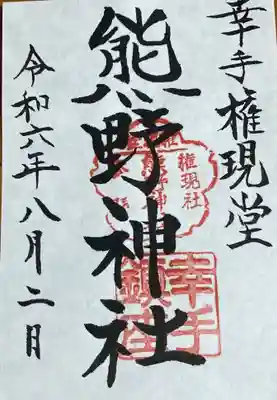 幸手権現堂
熊野神社
令和六年八月二日
権現社
幸手